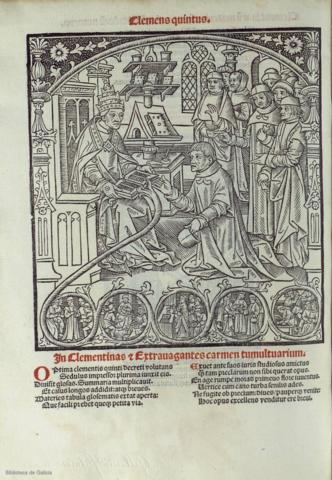 Clemens quintus.
In Clementinas & Extrauagantes carmen tumultuarium.
Optima clementis quinti decreti volutans
Sedulus impressor plurima iunxit eis.
Diuisit glosas. Summaria multiplicauit.
Et casus longos addidit: atq; breues.
Materies tabula glosematis extat aperta:
Que facili prebet queq; petita via.
Exuet ante suos iuris studiosus amictus
tam preclarum non sibi querat opus.
En age rumpe moras primeuo flore iuuentus.
Vertice cum cano turba senilis ades.
Ne fugite ob precium: diues: pauperq; venite:
Hoc opus excellens venditur ere breui.
Biblioteca de Galicia